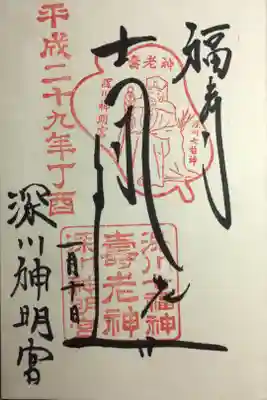 福寿
壽老神
深川七福神
深川神明宮
平成二十九年丁酉
深川七福神
壽老神
深川神明宮
一月十日
深川神明宮